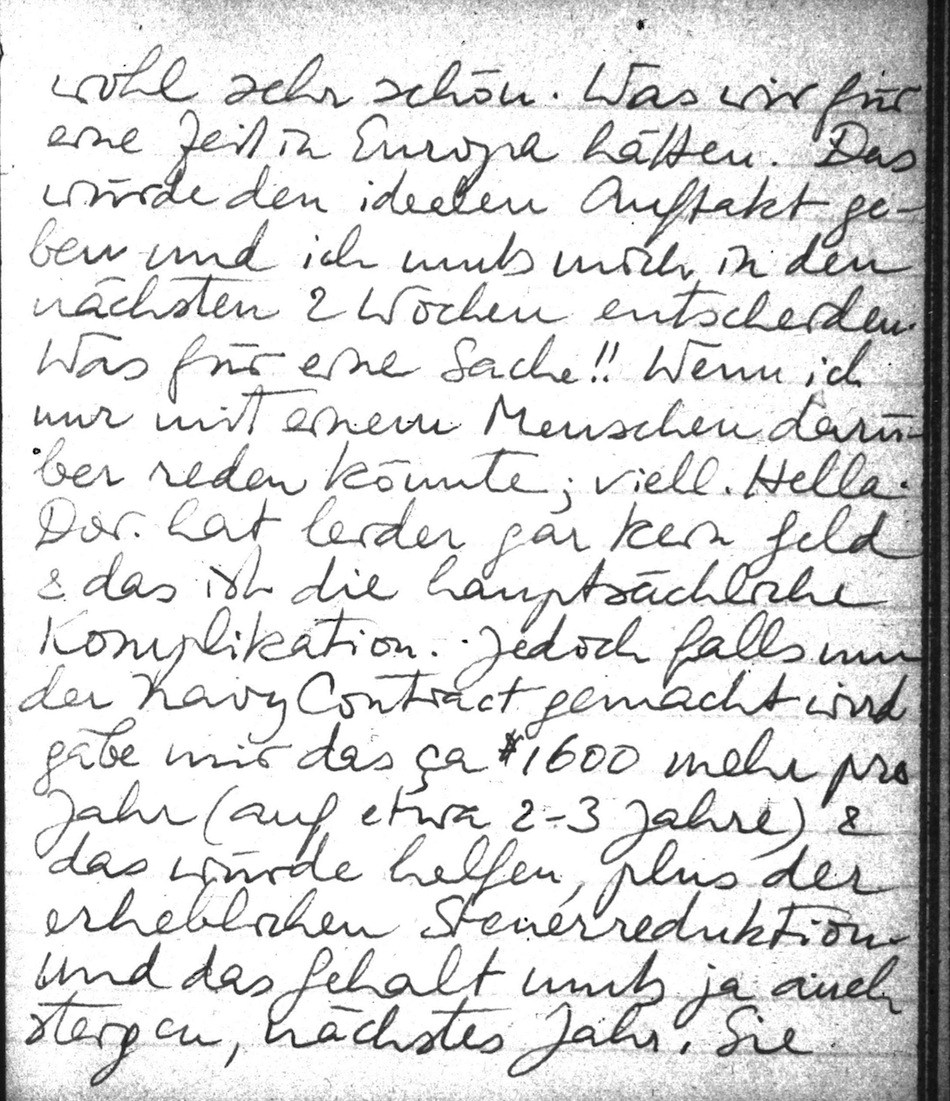 wohl sehr schön. Was wir für
eine Zeit in Europa hätten. Das
würde den idealen Auftakt ge-
ben und ich muß mich in den
nächsten 2 Wochen entscheiden.
Was für eine Sache!! Wenn ich
nur mit einem Menschen darü-
ber reden könnte; viell. Hella.
Dor. hat leider gar kein Geld
& das ist die hauptsächliche
Komplikation. Jedoch falls nun
der Navy Contract gemacht wird
gäbe mir das ça $1600 mehr pro
Jahr (auf etwa 2-3 Jahre) &
das würde helfen, plus der
erheblichen Steuerreduktion.
Und das Gehalt muß ja auch
steigen, nächstes Jahr. Sie